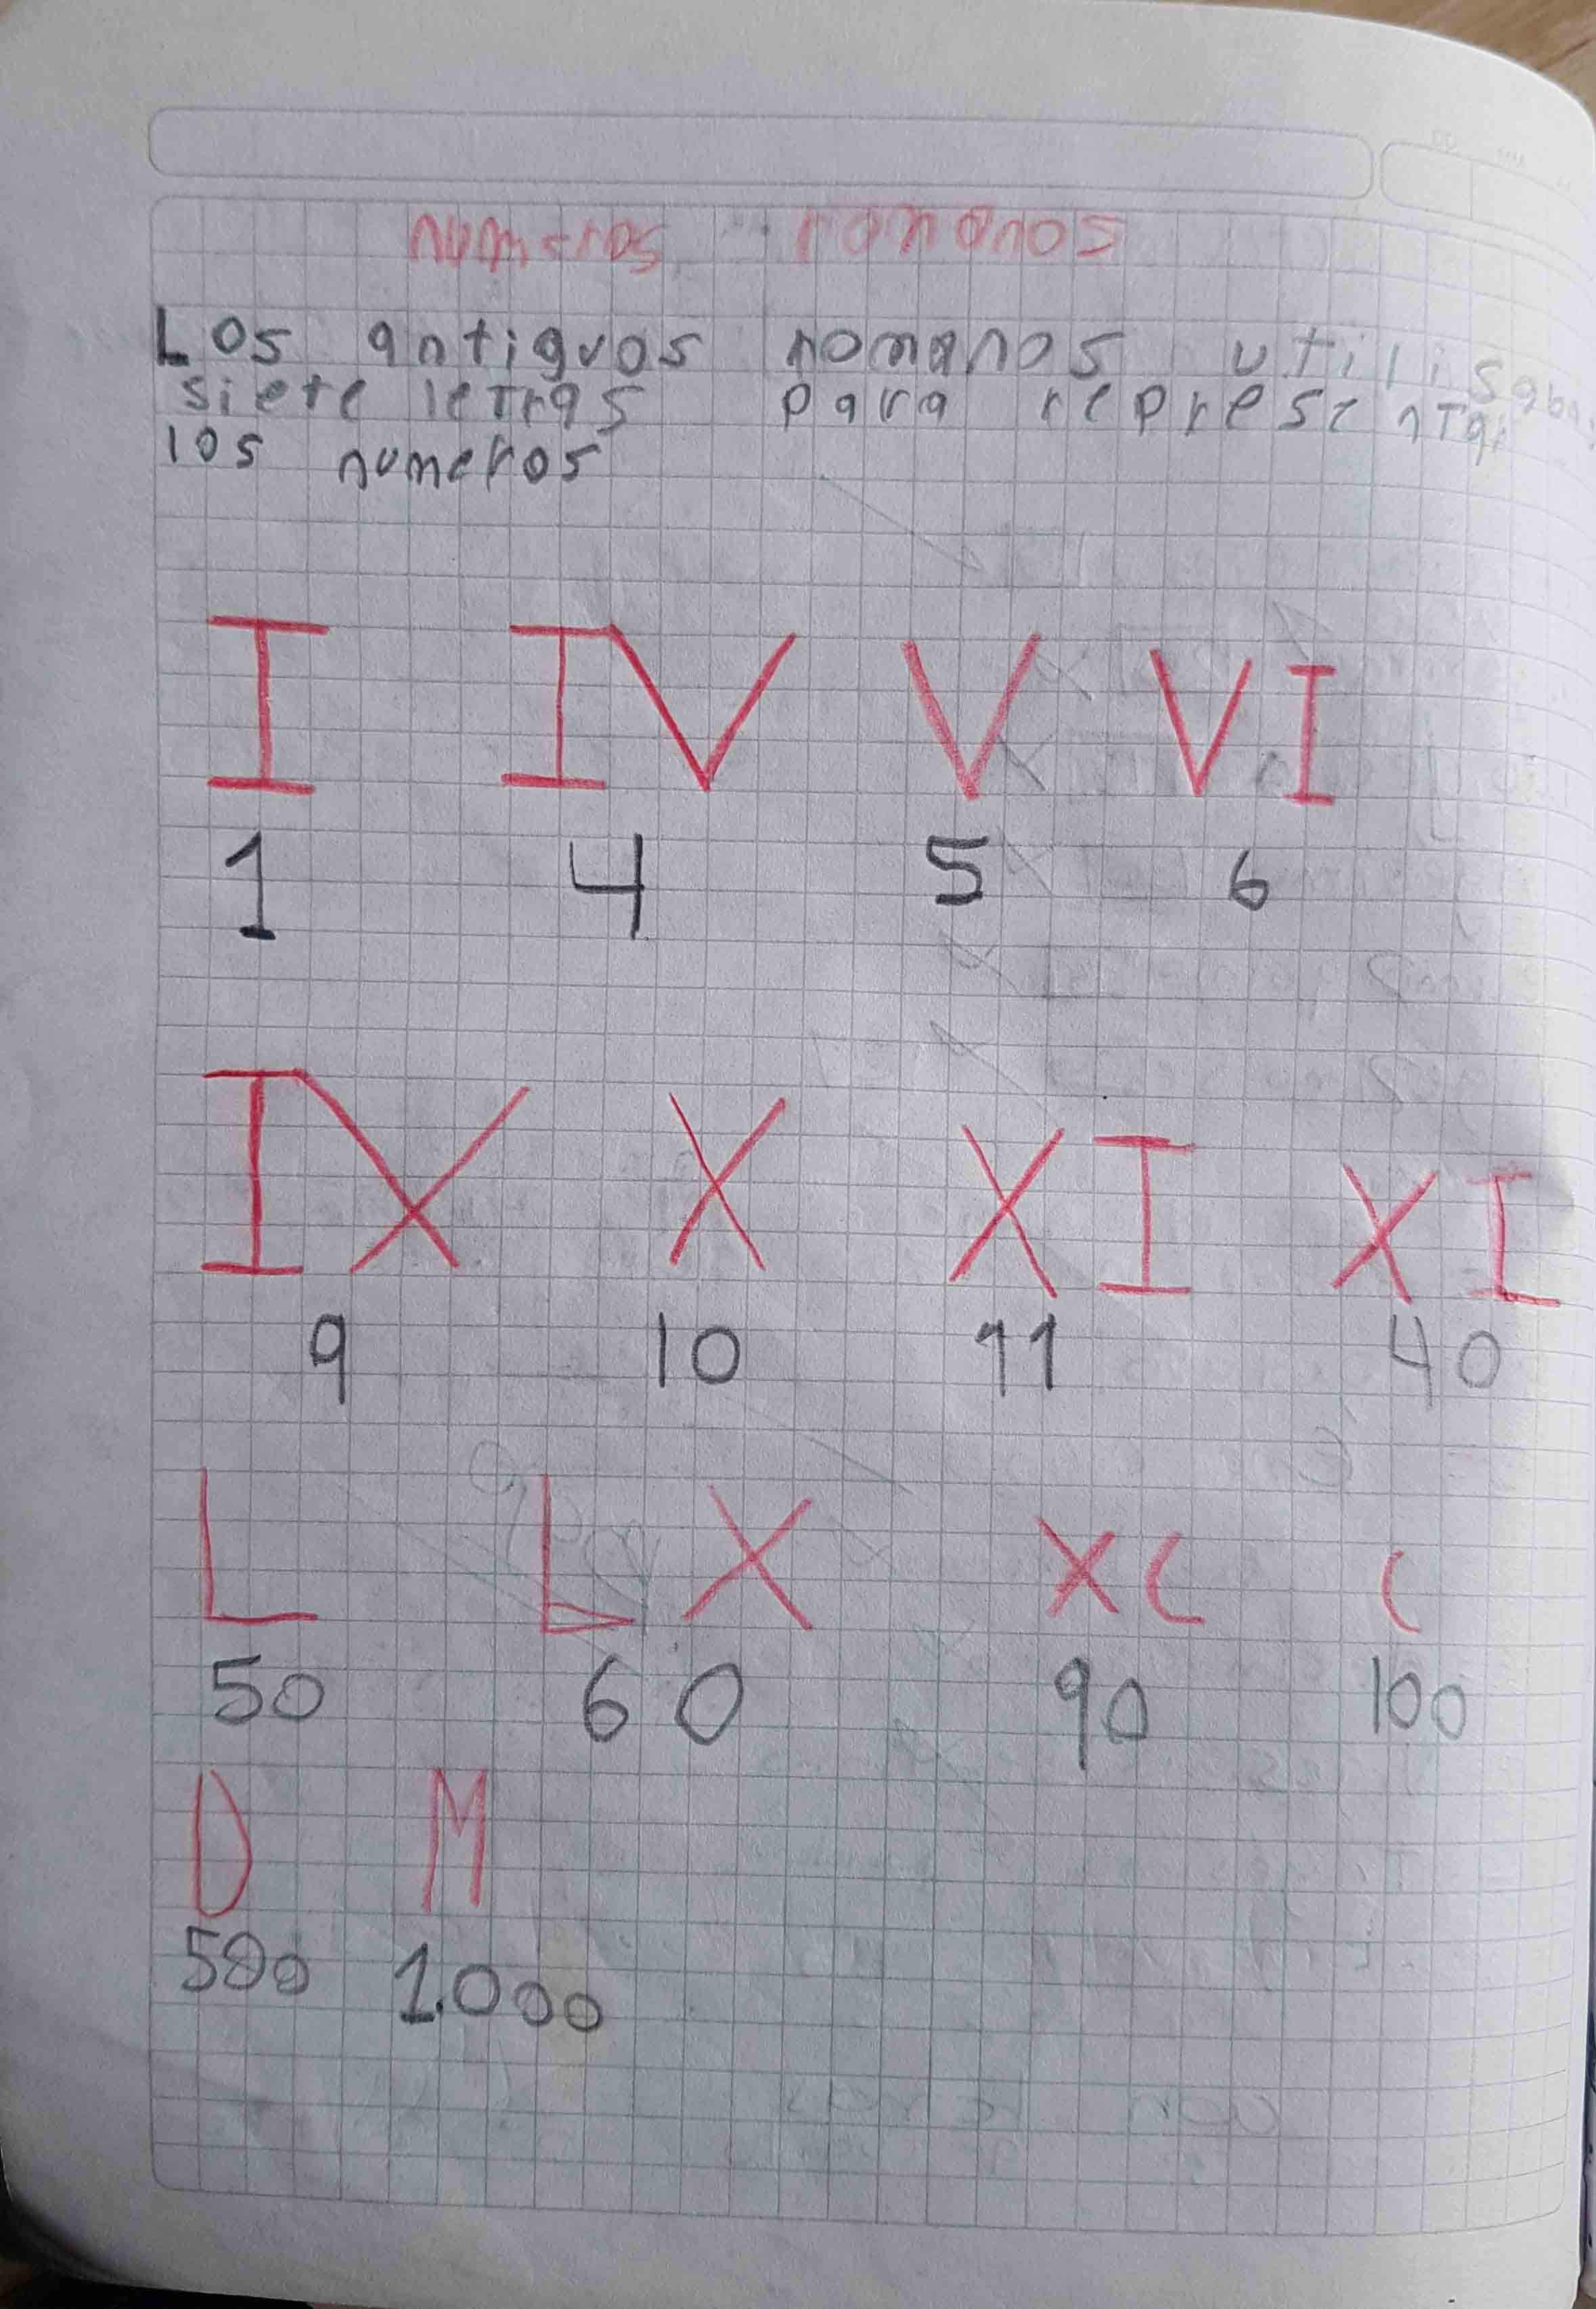 numeros romanos
Los antiguos romanos utilisaban
siete letras para representar
los numeros
I IV V VI
1 4 5 6
IX X XI XI
9 10 11 40
L LX XC C
50 60 90 100
D M
500 1.000